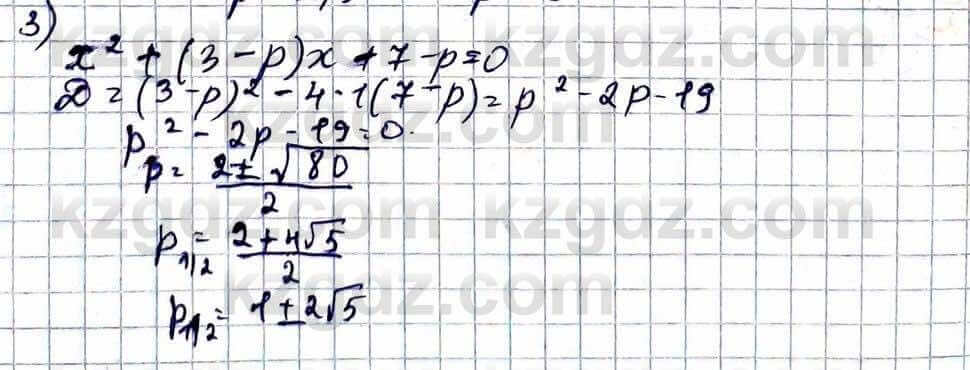 3)
x² + (3 - p)x + 7 - p = 0
D = (3 - p)² - 4 · 1(7 - p) = p² - 2p - 19
p² - 2p - 19 = 0.
p = 2 ± √80 / 2
p₁,₂ = 2 + 4√5 / 2
p₁,₂ = 1 ± 2√5
kzgdz.com kzgdz.com
kzgdz.com kzgdz.com
kzgdz.com